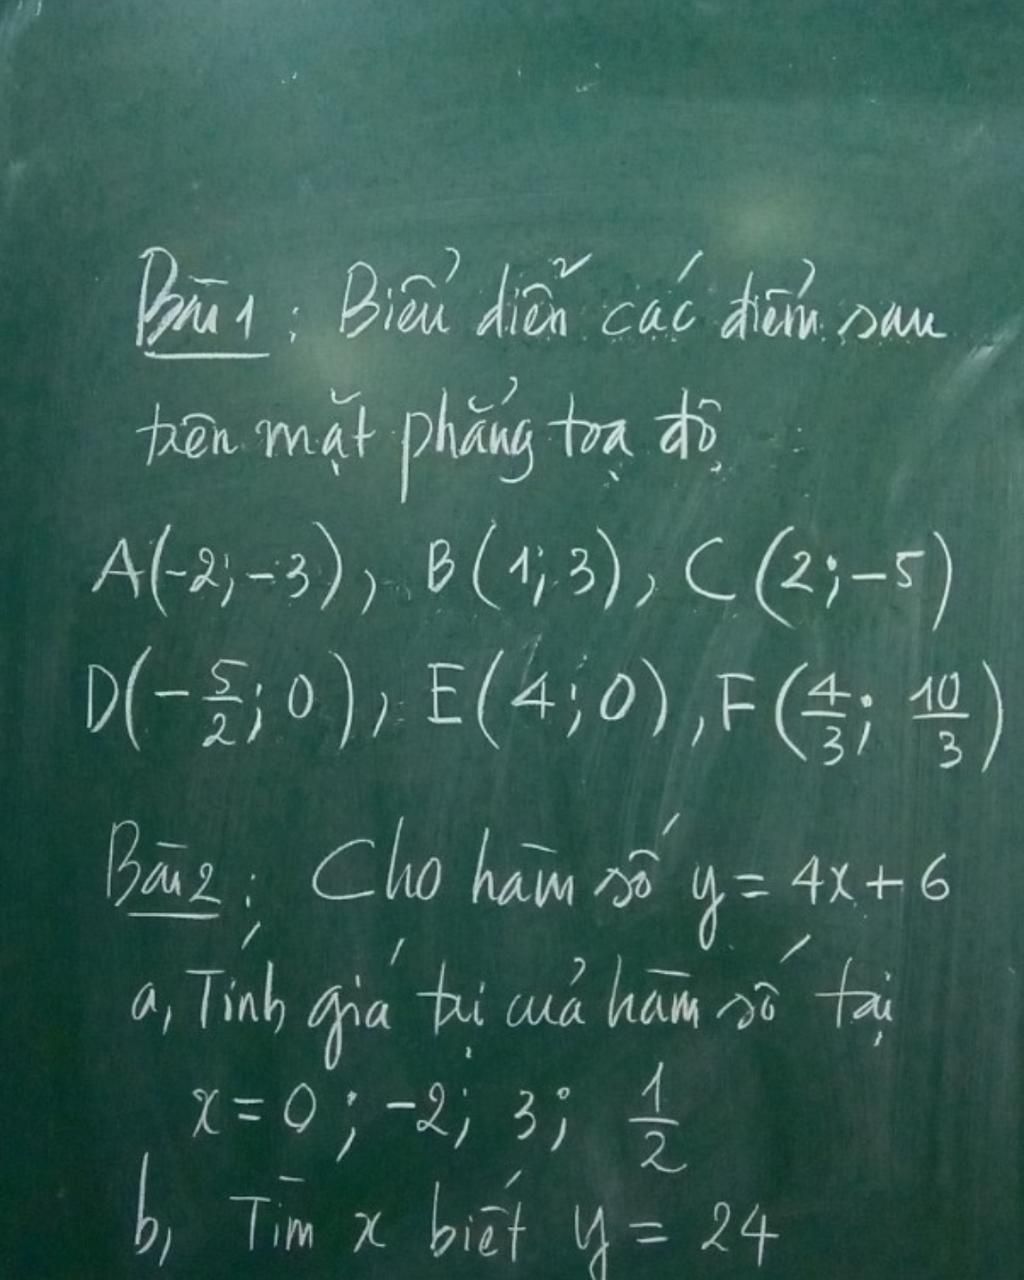 Bài 1 : Biểu diễn các điểm sau
trên mặt phẳng toạ độ
A(-2; -3), B(1; 3), C(2; -5)
D(-5/2; 0), E(4; 0), F(4/3; 10/3)
Bài 2 : Cho hàm số y = 4x + 6
a, Tính giá trị của hàm số tại
x = 0 ; -2; 3; 1/2
b, Tìm x biết y = 24